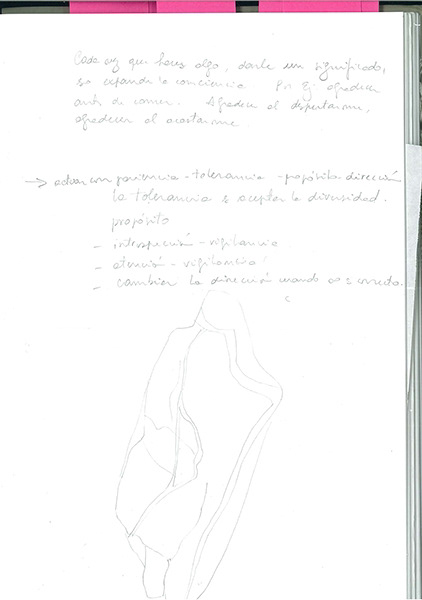 Cada vez que haces algo, darle un significado,
se expande la conciencia. Por Ej: agradecer
antes de comer. Agradecer al despertarme,
agradecer al acostarme.
→ actuar con paciencia - tolerancia - propósito dirección
la tolerancia es aceptar la diversidad.
propósito
- introspección - vigilancia
- atención - vigilancia
- cambiar la dirección cuando no es correcta.